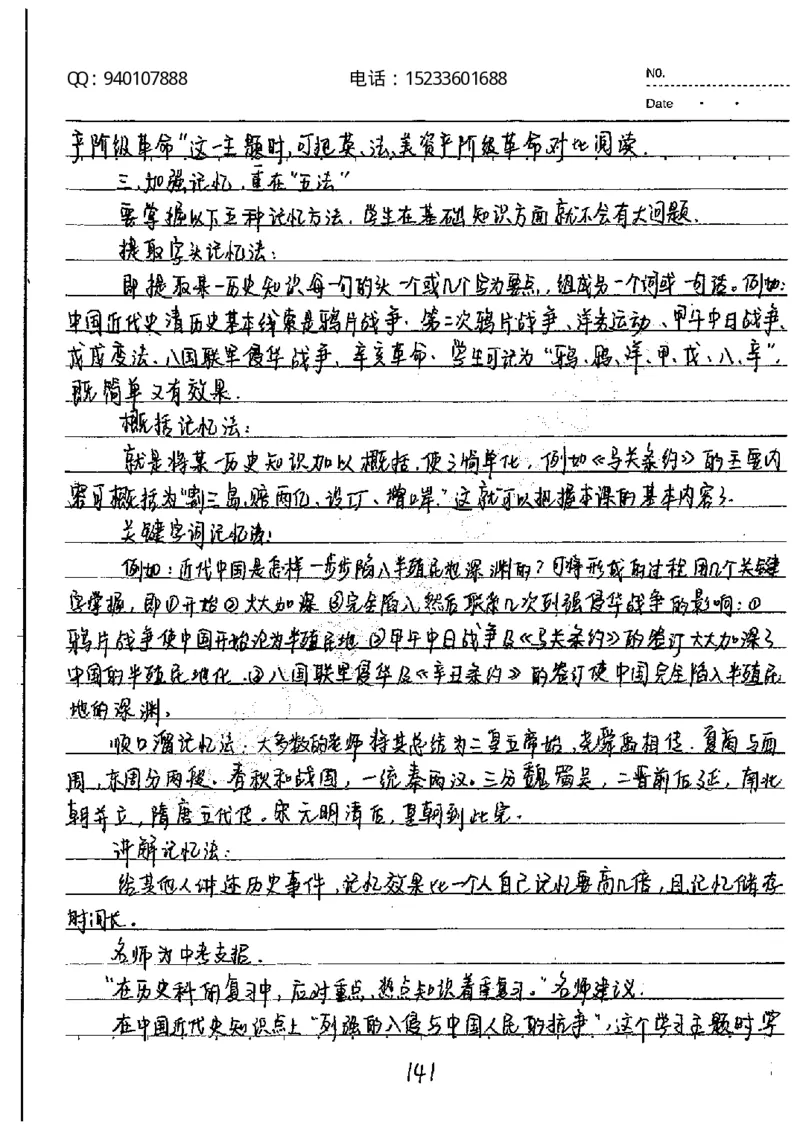 QQ：940107888 电话：15233601688 NO.
Date
产阶级革命"这一主题时,可把英、法、美资产阶级革命对比阅读.
三、加强记忆,重在"五法"
要掌握以下五种记忆方法,学生在基础知识方面就不会有大问题.
提取字头记忆法:
即提取某一历史知识每一句的头一个或几个字为要点,组成另一个词或一句话。例如:
中国近代史清历史基本线索是鸦片战争、第二次鸦片战争、洋务运动、甲午中日战争、
戊戌变法、八国联军侵华战争、辛亥革命、学生可记为"鸦、鸦、洋、甲、戊、八、辛",
既简单又有效果.
概括记忆法:
就是将某一历史知识加以概括,使之简单化,例如《马关条约》的主要内
容可概括为"割三岛,赔两亿、设厂、增口岸."这就可以把握本课的基本内容了.
关键字词记忆法:
例如:近代中国是怎样一步步陷入半殖民地深渊的?可将形成的过程用几个关键
字掌握,即①开始②大大加深③完全陷入,然后联系几次列强侵华战争的影响:①
鸦片战争使中国开始沦为半殖民地②甲午中日战争及《马关条约》的签订大大加深了
中国的半殖民地化.③八国联军侵华及《辛丑条约》的签订使中国完全陷入半殖民
地的深渊,
顺口溜记忆法:大多数的老师将其总结为三皇五帝始,尧舜禹相传.夏商与西
周,东周分两段.春秋和战国,一统秦两汉。三分魏蜀吴,二晋前后延,南北
朝并立,隋唐五代传。宋元明清后,皇朝到此完.
讲解记忆法:
给其他人讲述历史事件,记忆效果比一个人自己记忆要高几倍,且记忆储存
时间长.
名师为中考支招.
"在历史科的复习中,应对重点、热点知识着重复习。"名师建议.
在中国近代史知识点上"列强的入侵与中国人民的抗争",这个学习主题时学
141